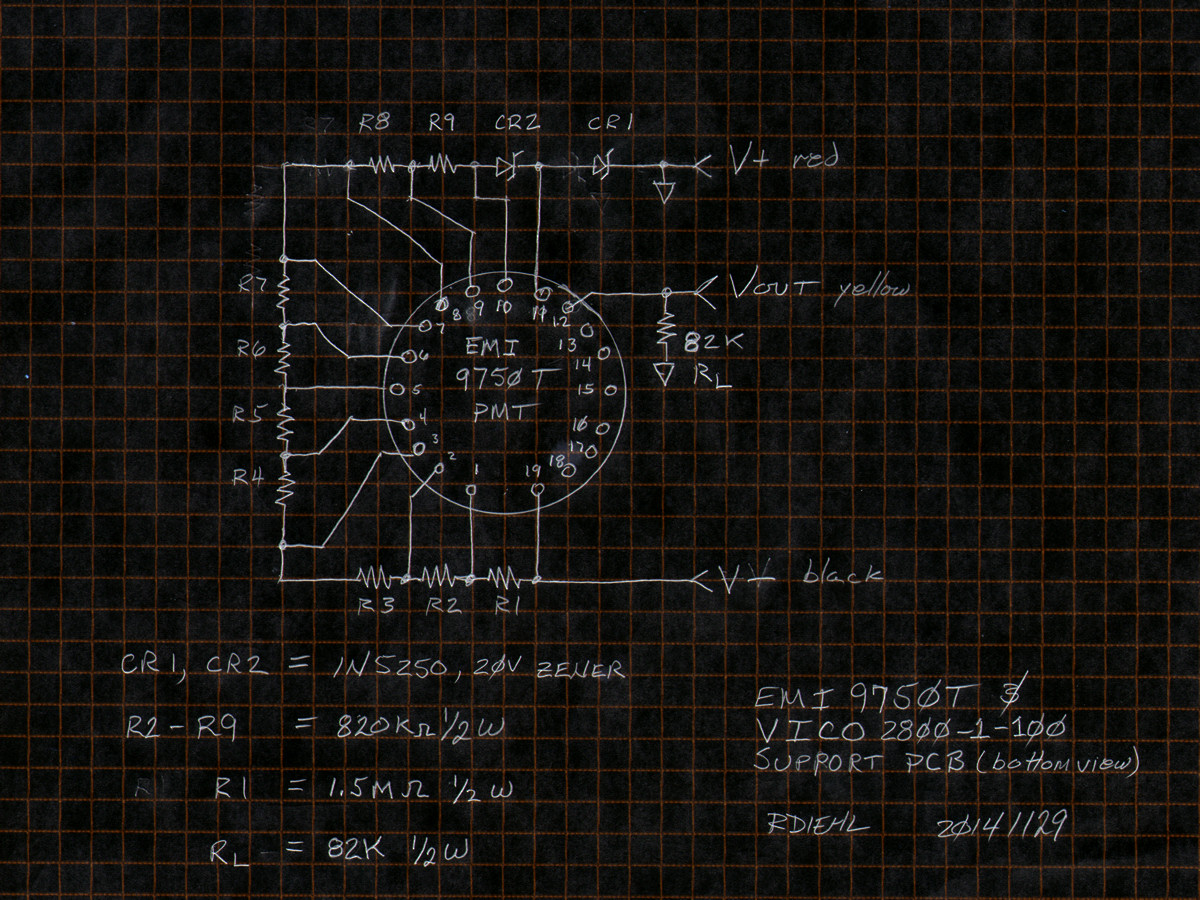 R8 R9 CR2 CR1
V+ red
R7
VOUT yellow
8 9 10 11 12
7
13
R6
EMI
82K
6
14
975ØT
RL
5
15
R5
4
PMT
16
3
17
2
18
R4
1
19
V- black
R3 R2 R1
CR1, CR2 = 1N5250, 2ØV ZENER
R2-R9 = 820KΩ 1/2 W
R1 = 1.5MΩ 1/2 W
RL = 82K 1/2 W
EMI 975ØT &
VICO 28ØØ-1-1ØØ
SUPPORT PCB (bottom view)
RDIEHL 2Ø141129